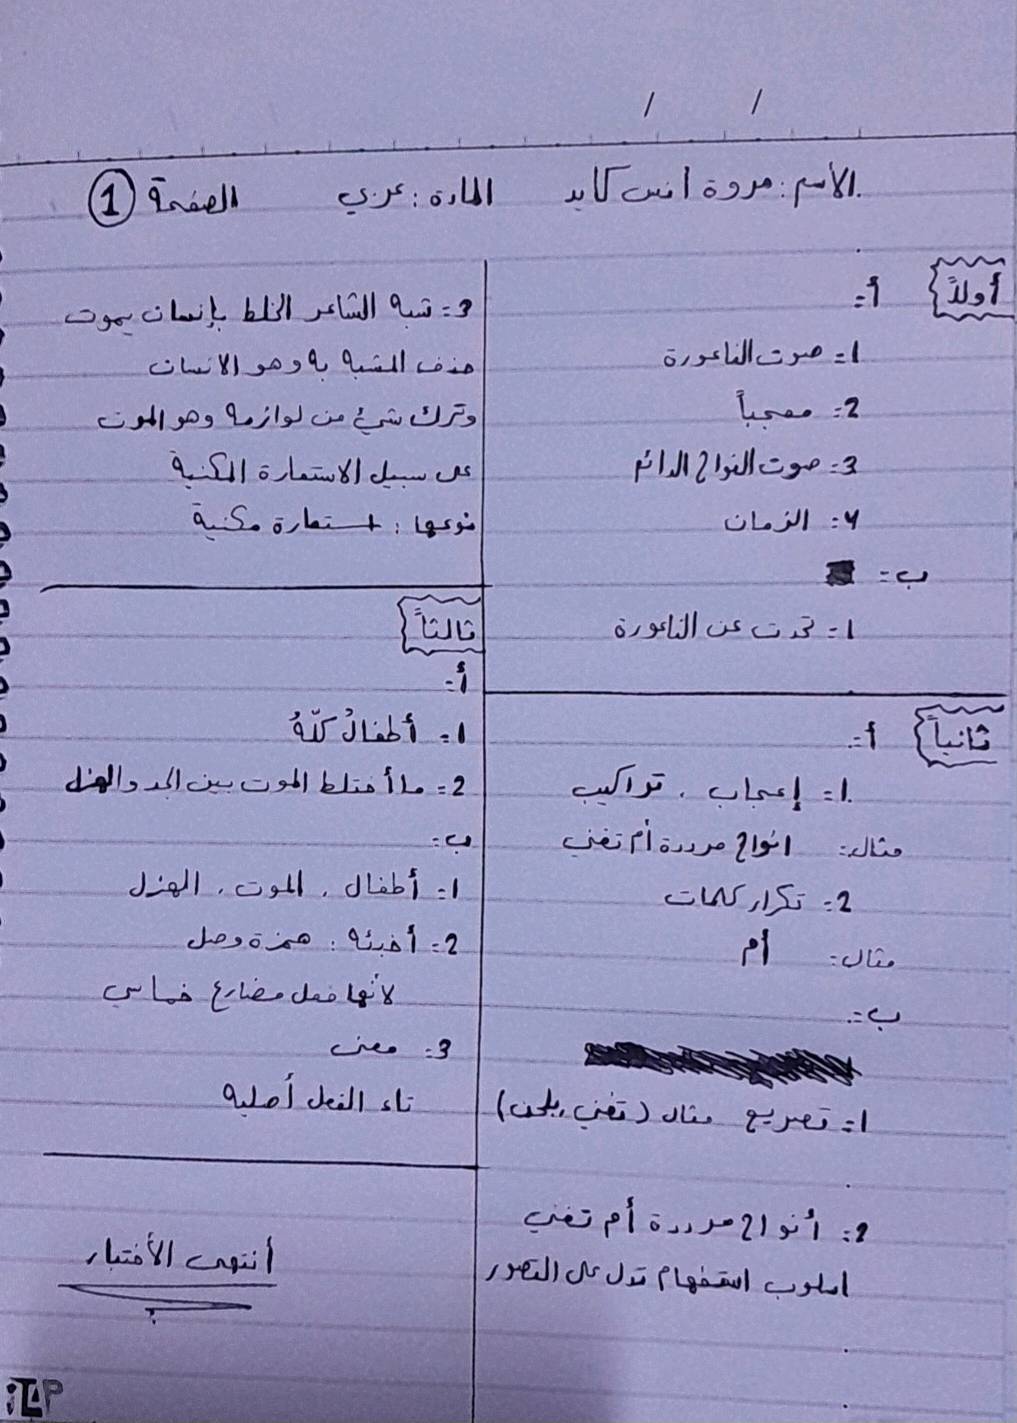 الاسم: مروة انس كايد المادة: عربي الصفحة 1
أولاً
أ-:
1-: صوت الناعورة
2-: معجباً
3-: صوت النواح الدائم
4-: الزمان
ب-:
1-: تحدث عن الناعورة
ثانياً
أ-:
1-: إعجاب، تراكيب
مثال: انواح مرددة أم تغني
2-: تكرار كلمات
مثال: أم
ب-:
1-: تصريع مثال (تغني، بلحن)
2-: أنواح مرددة أم تغني
اسلوب استفهام تدل على التصور
3-: شبه الشاعر الخلط بإنسان يموت
حذف المشبه به وهو الانسان
وترك شيئ من لوازمه وهو الموت
على سبيل الاستعارة المكنية
نوعها: استعارة مكنية
ثالثاً
أ-:
1-: أطفالُ كلّهُ
2-: ما أختلط الموت بين الجد والهزل
ب-:
1-: أطفال، الموت، الهزل
2-: أخبئه: همزة وصل
لأنها فعل مضارع خماسي
3-: معنى
تاء الفعل أصليه
أنتهى الأختبار